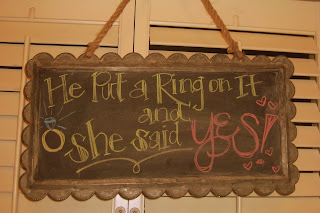 He Put a Ring on It
and
she said YES!